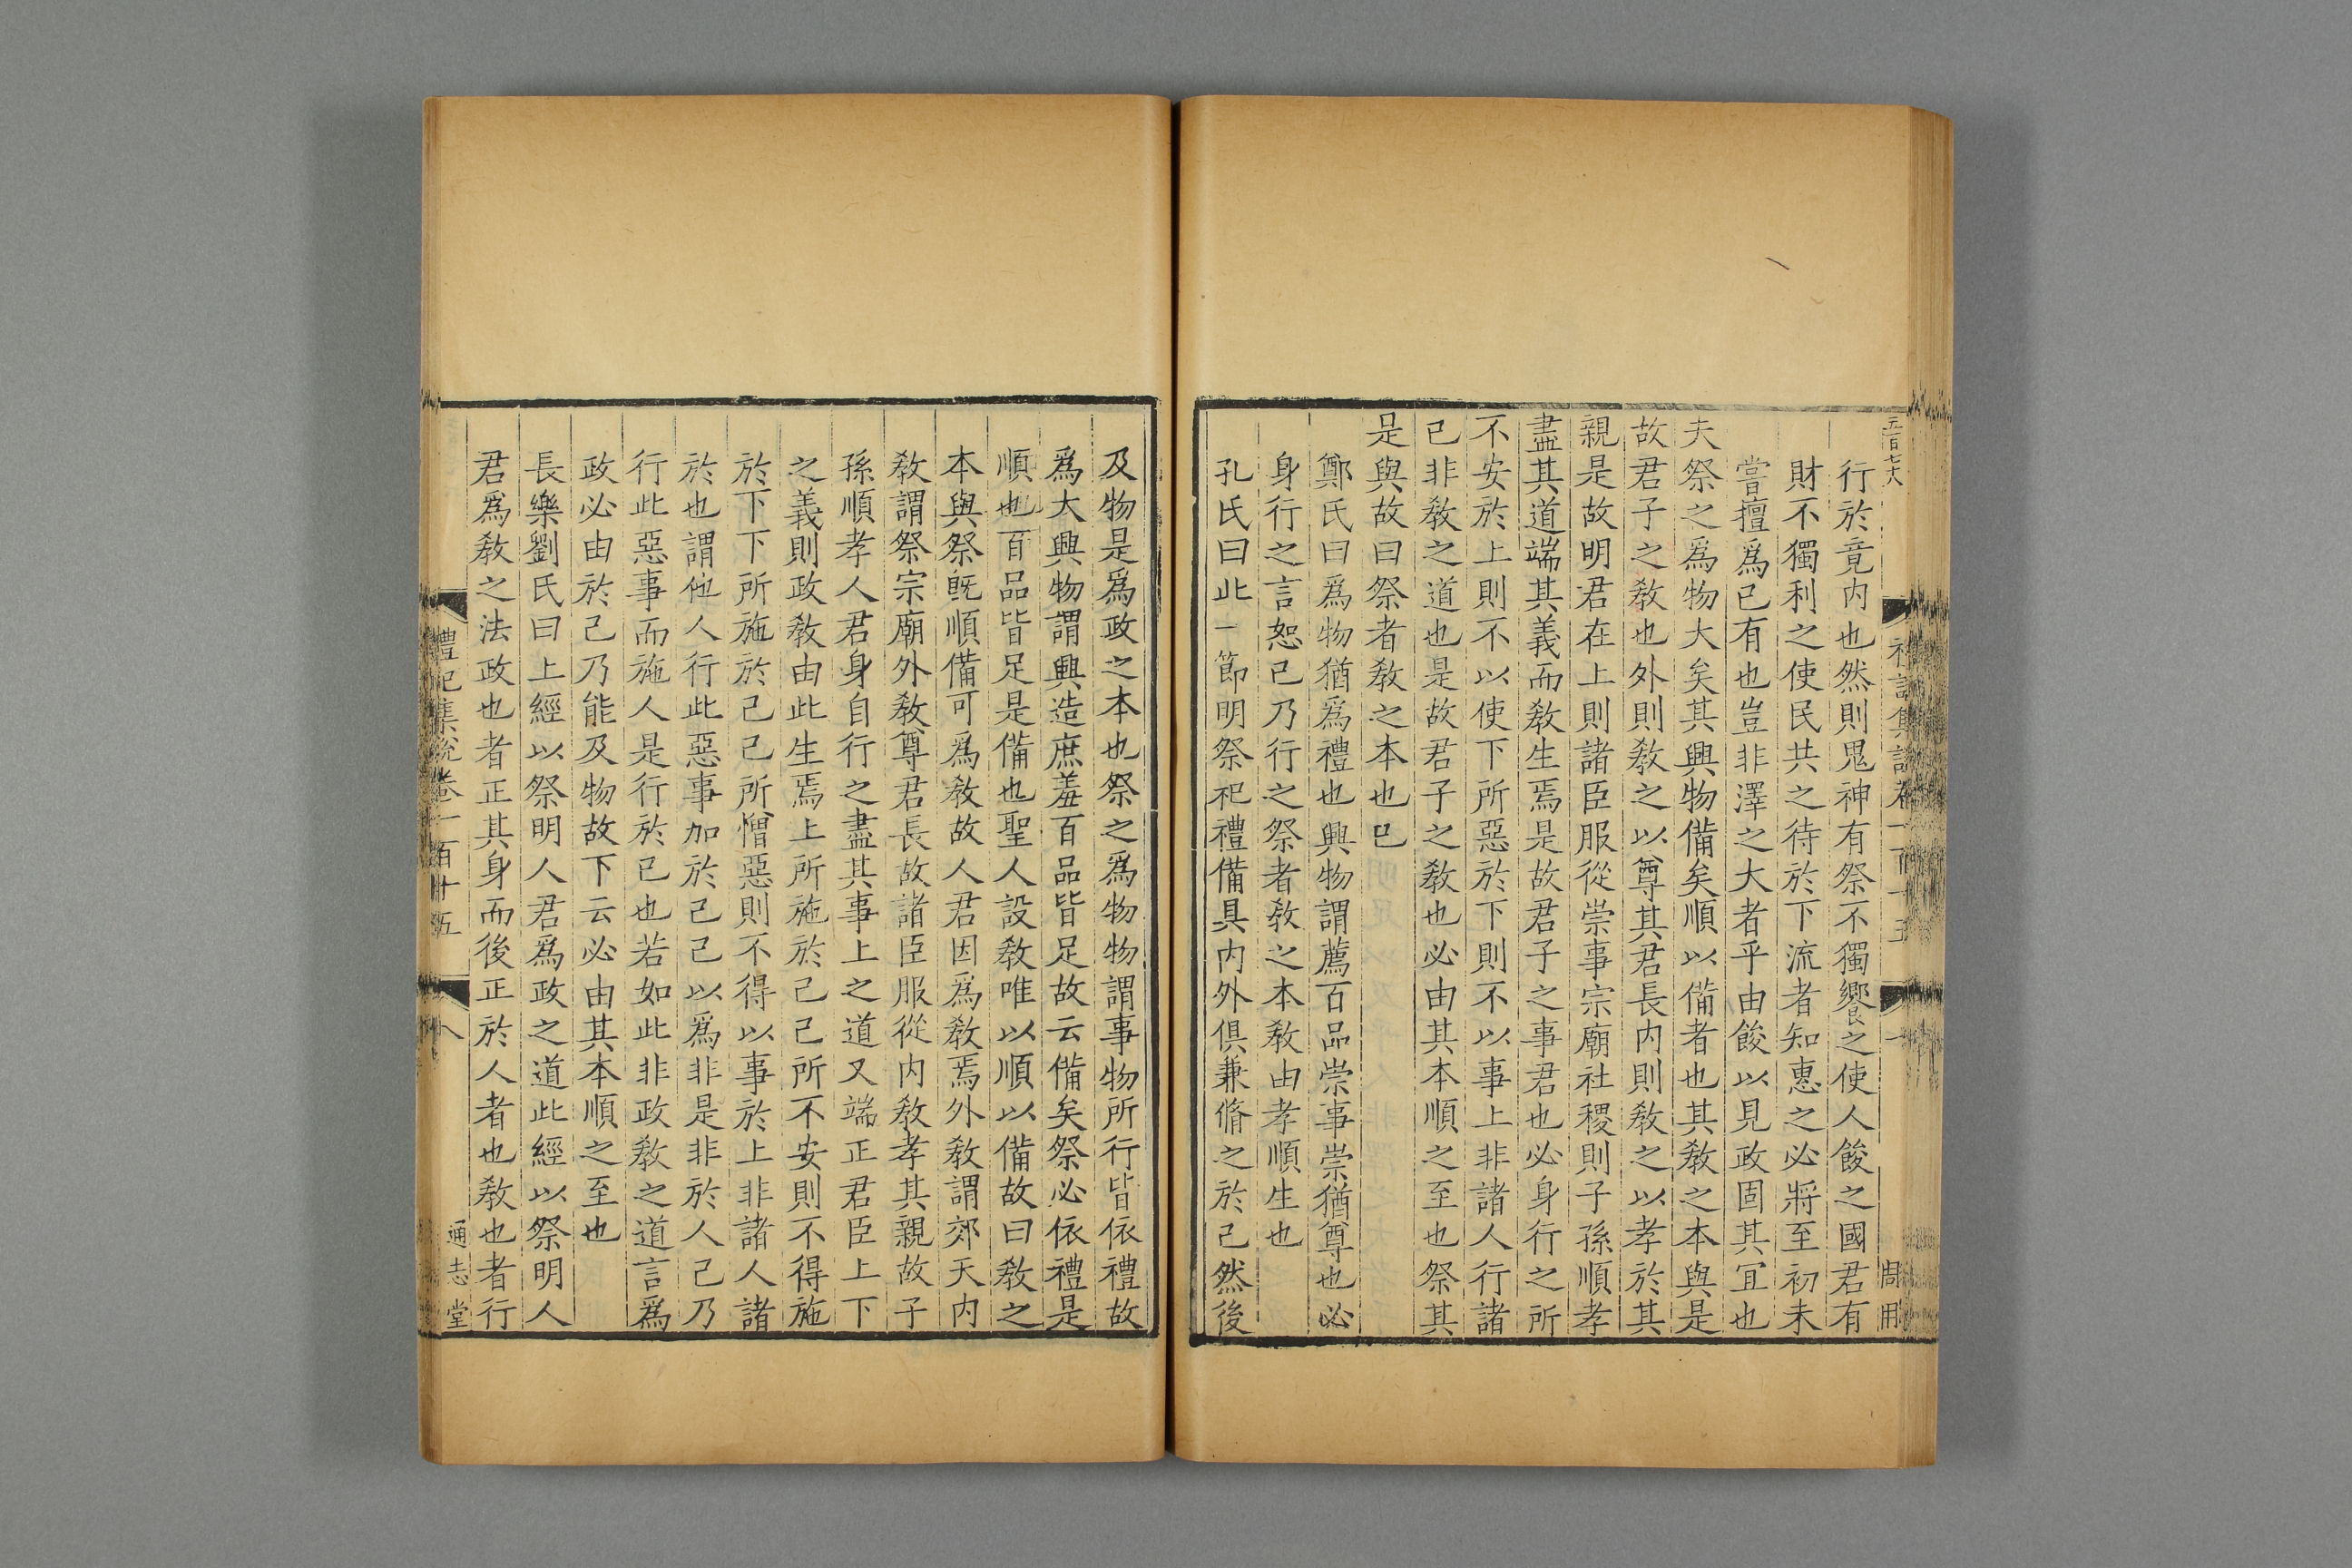 行於竟内也然則鬼神有祭不獨饗之使人餕之國君有
財不獨利之使民共之待於下流者知惠之必將至初未
嘗擅爲已有也豈非澤之大者乎由餕以見政固其宜也
夫祭之爲物大矣其興物備矣順以備者也其敎之本與是
故君子之敎也外則敎之以尊其君長内則敎之以孝於其
親是故明君在上則諸臣服從崇事宗廟社稷則子孫順孝
盡其道端其義而敎生焉是故君子之事君也必身行之所
不安於上則不以使下所惡於下則不以事上非諸人行諸
已非敎之道也是故君子之敎也必由其本順之至也祭其
是與故曰祭者敎之本也已
鄭氏曰爲物猶爲禮也興物謂薦百品崇事崇猶尊也必
身行之言恕已乃行之祭者敎之本敎由孝順生也
孔氏曰此一節明祭祀禮備具内外俱兼脩之於己然後
及物是爲政之本也祭之爲物物謂事物所行皆依禮故
爲大興物謂興造庶羞百品皆足故云備矣祭必依禮是
順也百品皆足是備也聖人設敎唯以順以備故曰敎之
本與祭旣順備可爲敎故人君因爲敎焉外敎謂郊天内
敎謂祭宗廟外敎尊君長故諸臣服從内敎孝其親故子
孫順孝人君身自行之盡其事上之道又端正君臣上下
之義則政敎由此生焉上所施於己己所不安則不得施
於下下所施於己己所憎惡則不得以事於上非諸人諸
於也謂他人行此惡事加於己己以爲非是非於人己乃
行此惡事而施人是行於已也若如此非政敎之道言爲
政必由於己乃能及物故下云必由其本順之至也
長樂劉氏曰上經以祭明人君爲政之道此經以祭明人
君爲敎之法政也者正其身而後正於人者也敎也者行
禮記集說卷一百十五 八 通志堂